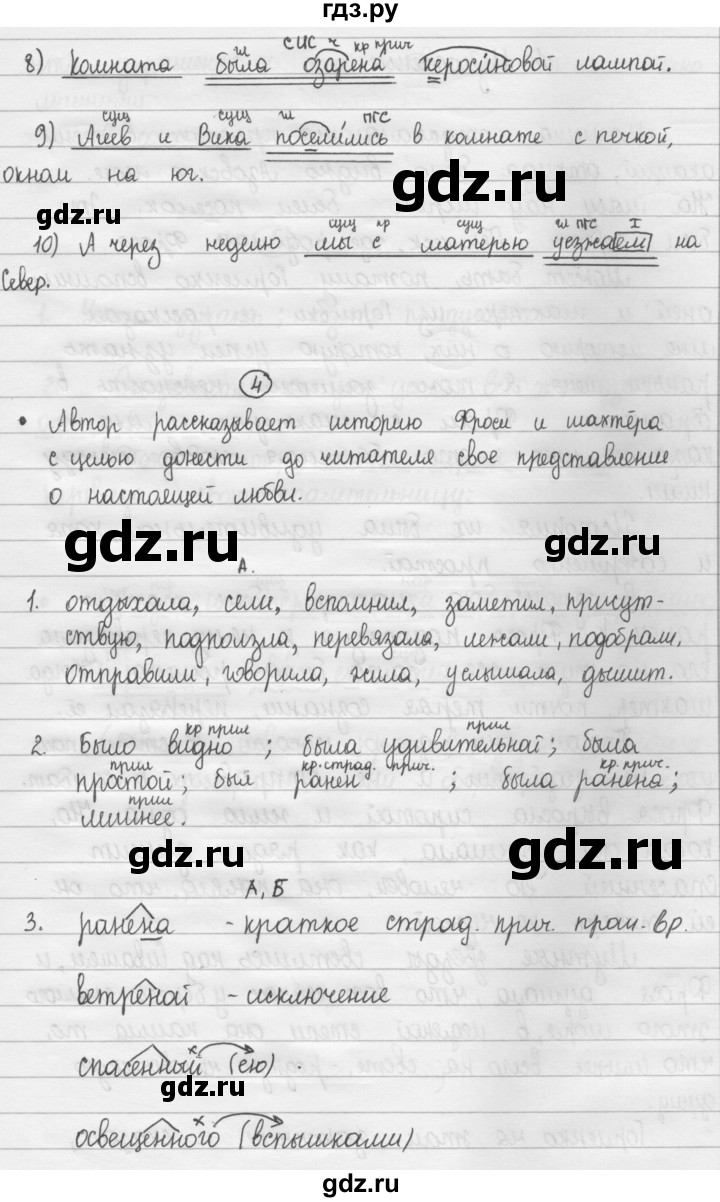 гдз.ру
СИС ч кр прич
8) Комната была озарена керосиновой лампой.
сущ сущ ПГС
9) Агеев и Вика поселились в комнате с печкой,
окном на юг.
gdz.ru
сущ пр сущ ПГС I
10) А через неделю мы с матерью уезжаем на
Север.
4
• Автор рассказывает историю Фроси и шахтёра
с целью донести до читателя свое представление
о настоящей любви.
gdz.ru
gdz.ru
А.
1. отдыхала, сели, вспомнил, заметил, присут-
ствую, подползла, перевязала, лежали, подобрали,
отправили, говорила, жила, услышала, дышит.
кр прил прил
2. Было видно; была удивительной; была
прил кр.страд. прич. кр. прич.
простой; был ранен ; была ранена;
прил
лишнее.
gdz.ru
gdz.ru
А, Б
3. ранена - краткое страд. прич. прош. вр.
ветреной - исключение
спасенный (ею)
gdz.ru
освещенного (вспышками)
gdz.ru